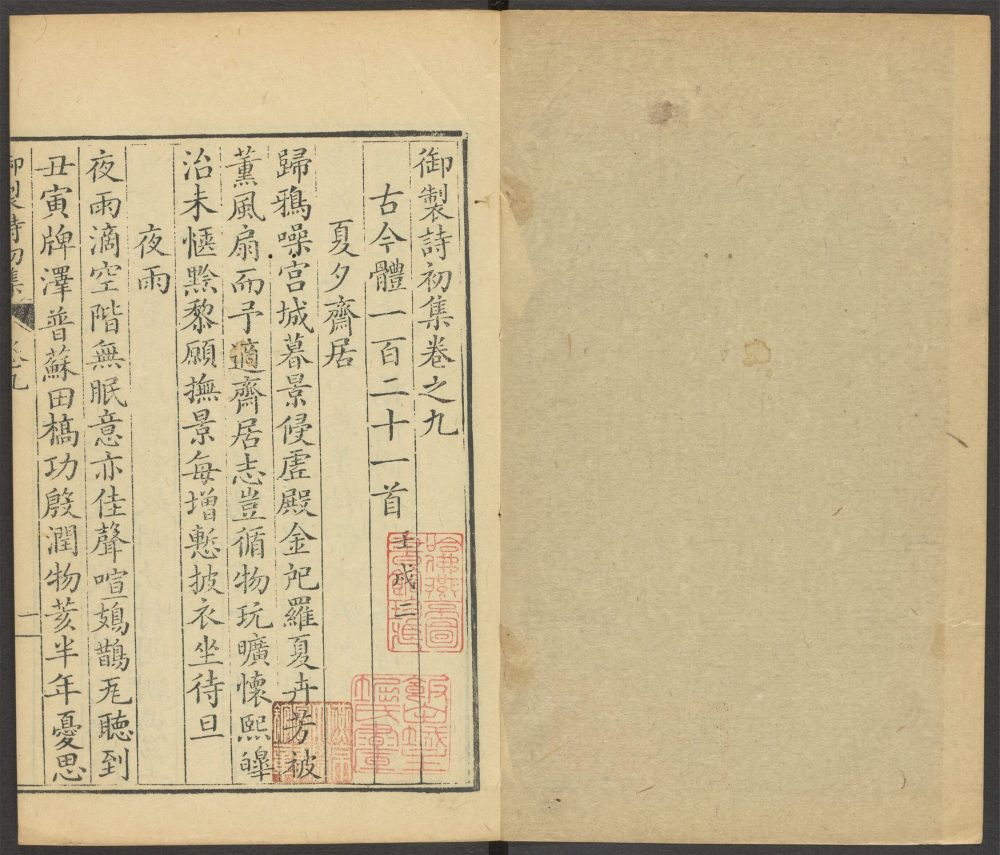 御製詩初集卷之九
古今體一百二十一首 壬戌二
夏夕齋居
歸鴉噪宮城暮景侵虛殿金戺羅夏卉芳被
薰風扇而予適齋居志豈循物玩曠懷熙皞
治未愜黔黎願撫景每增慙披衣坐待旦
夜雨
夜雨滴空階無眠意亦佳聲喧鳷鵲瓦聽到
丑寅牌澤普蘇田槁功殷潤物荄半年憂思
御製詩初集 卷九 一